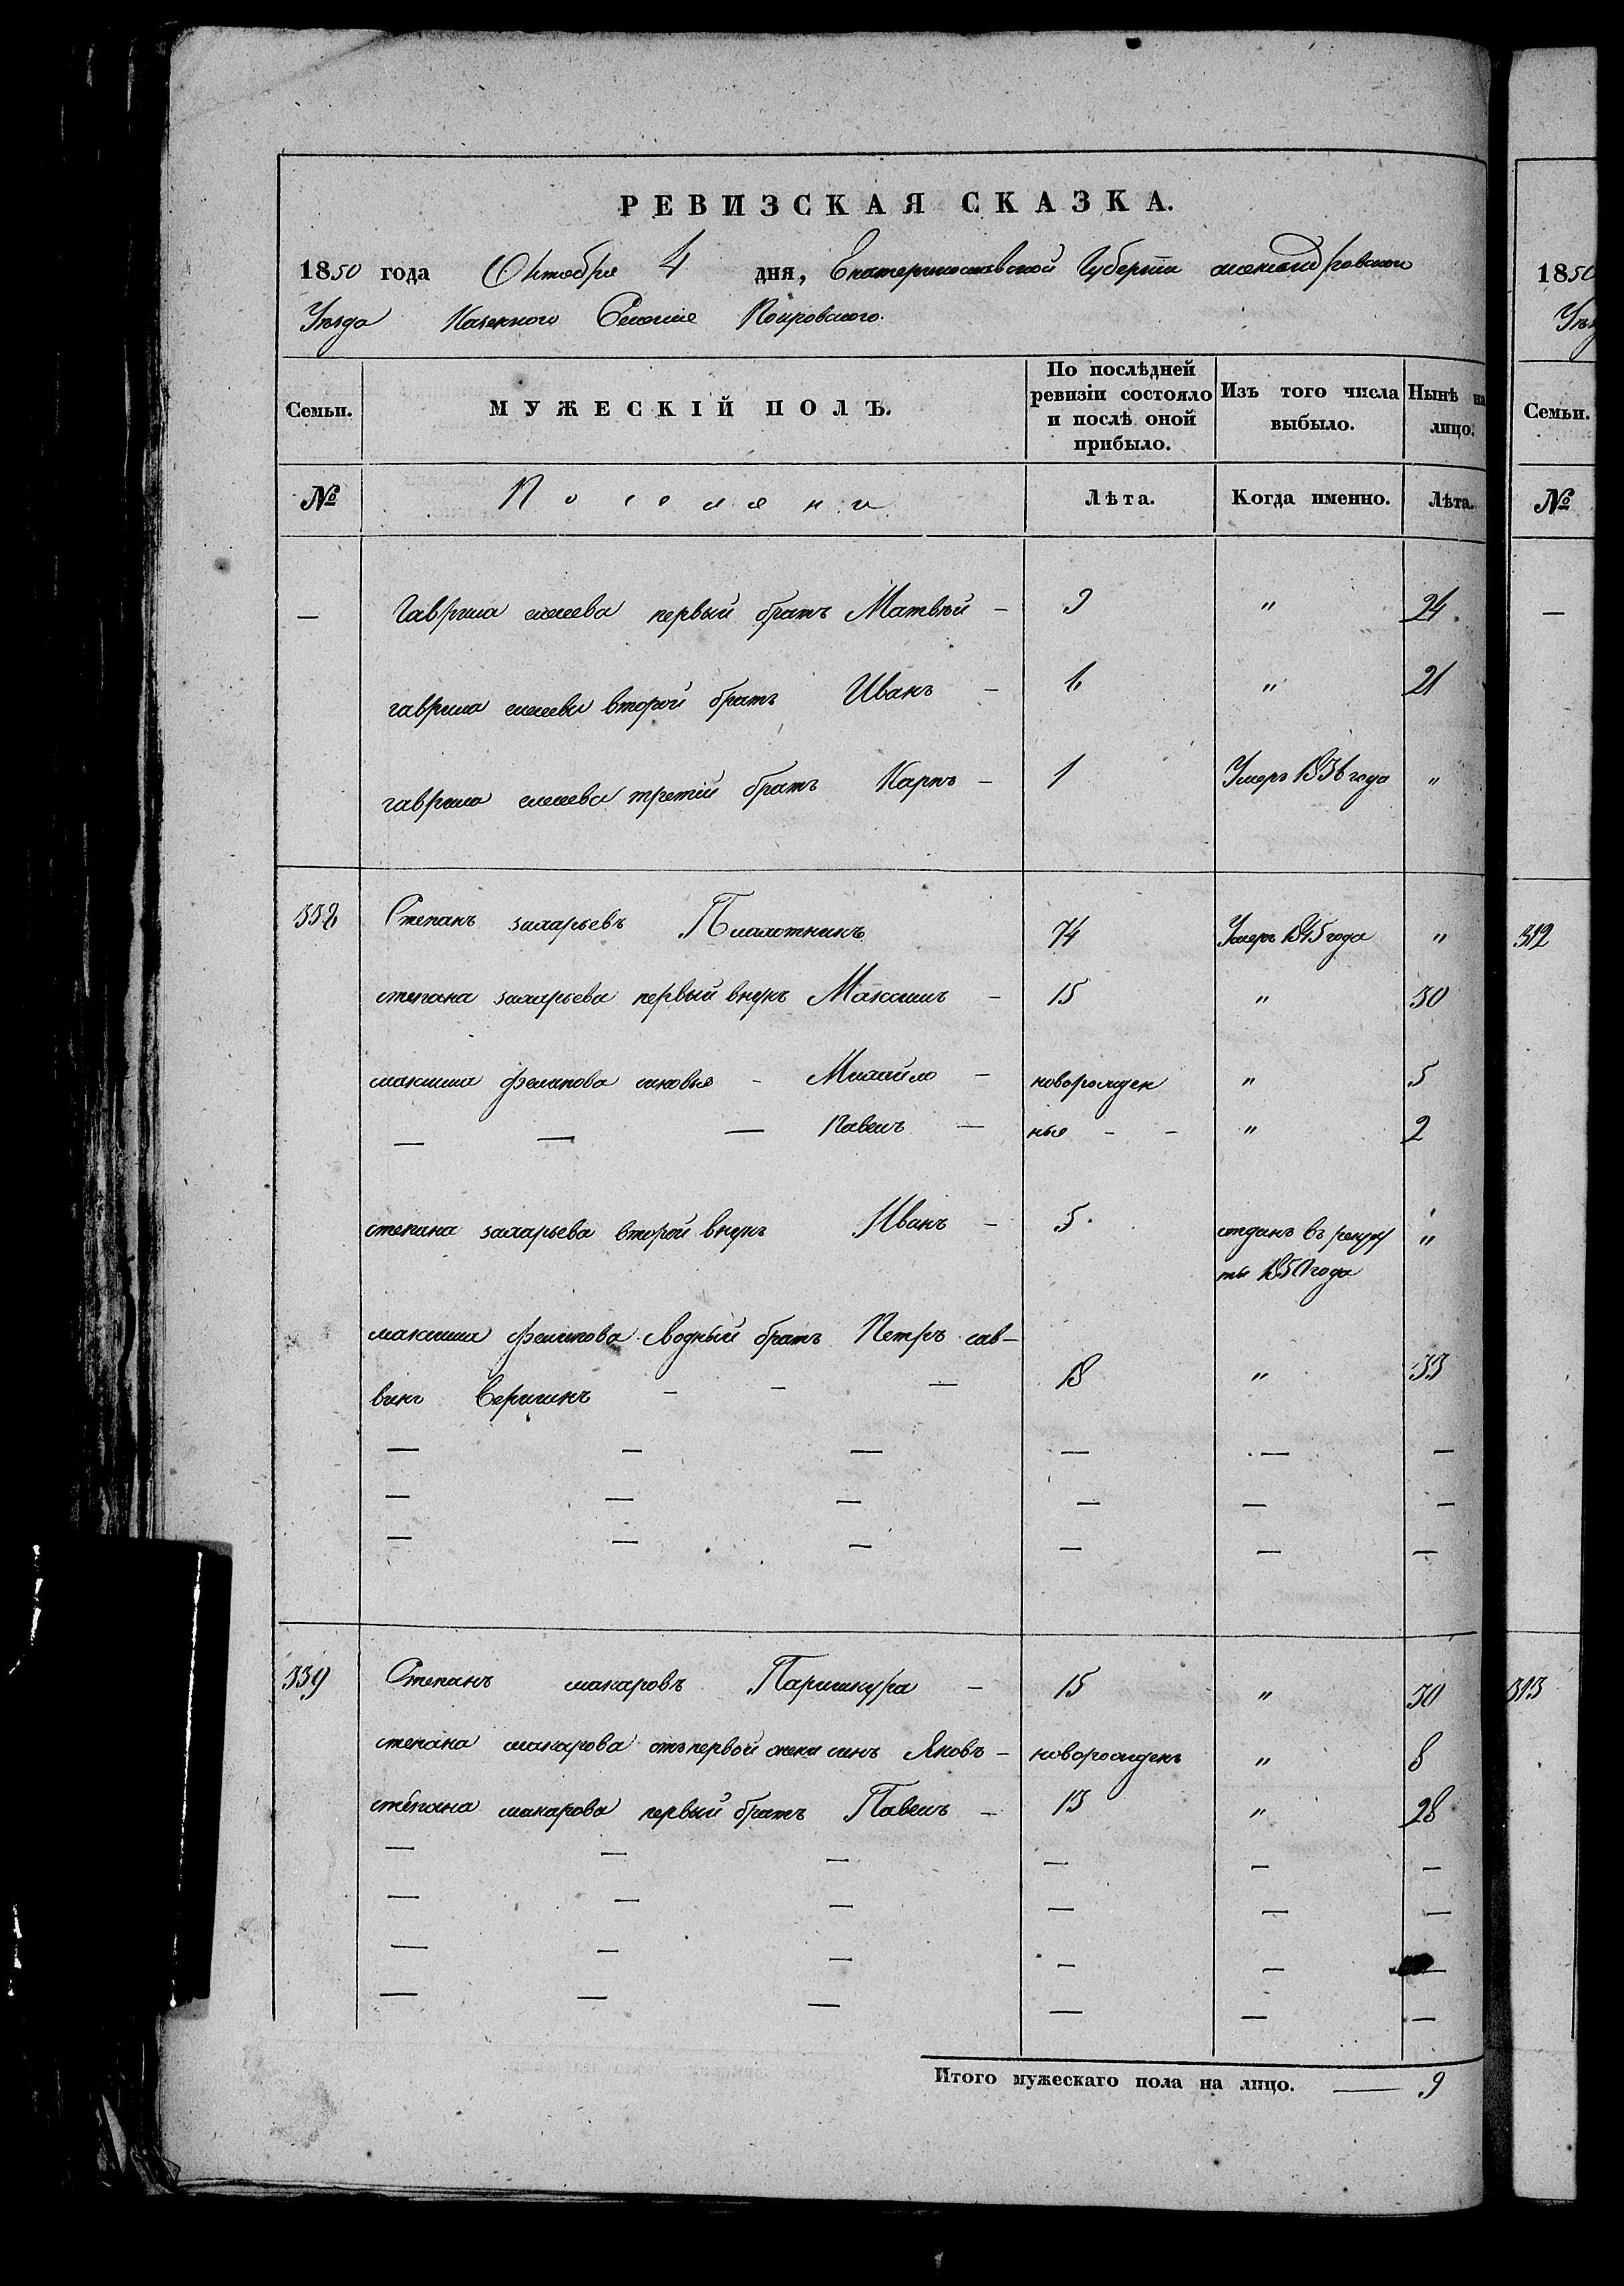 РЕВИЗСКАЯ СКАЗКА.
1850 года Октября 4 дня, Екатеринославской Губернiи александровскаго
Уѣзда Казенного Селенiя Покровского.
Семьи. МУЖЕСКIЙ ПОЛЪ. По послѣдней ревизiи состояло и послѣ оной прибыло. Изъ того числа выбыло. Нынѣ на лицо.
№ Поселяни Лѣта. Когда именно. Лѣта.
— Гаврила первый братъ Матвѣй — 9 " 24
гаврила второй братъ Иванъ — 6 " 21
гаврила третiй братъ Карпъ — 1 Умеръ 1836 года "
338 Степанъ захарьевъ Плахотникъ 74 Умеръ 1845 года "
степана захарьева первый внукъ Максимъ — 15 " 30
максима филипова сыновья — Михайло — новорожден " 5
— — — Павелъ — ные — — " 2
степана захарьева второй внукъ Иванъ — 5 отданъ в рекру "
ты 1850 года
максима филипова сводный братъ Петръ сав–
винъ 18 " 33
— — — — — —
— — — — — —
— — — — — —
339 Степанъ макаровъ Паришкура — 15 " 30
степана макарова отъ первой жены сынъ Яковъ — новорожденъ " 8
степана макарова первый братъ Павелъ — 13 " 28
— — — — — —
— — — — — —
— — — — — —
— — — — — —
Итого мужескаго пола на лицо. — 9
1850
Семьи.
№
—
312
313